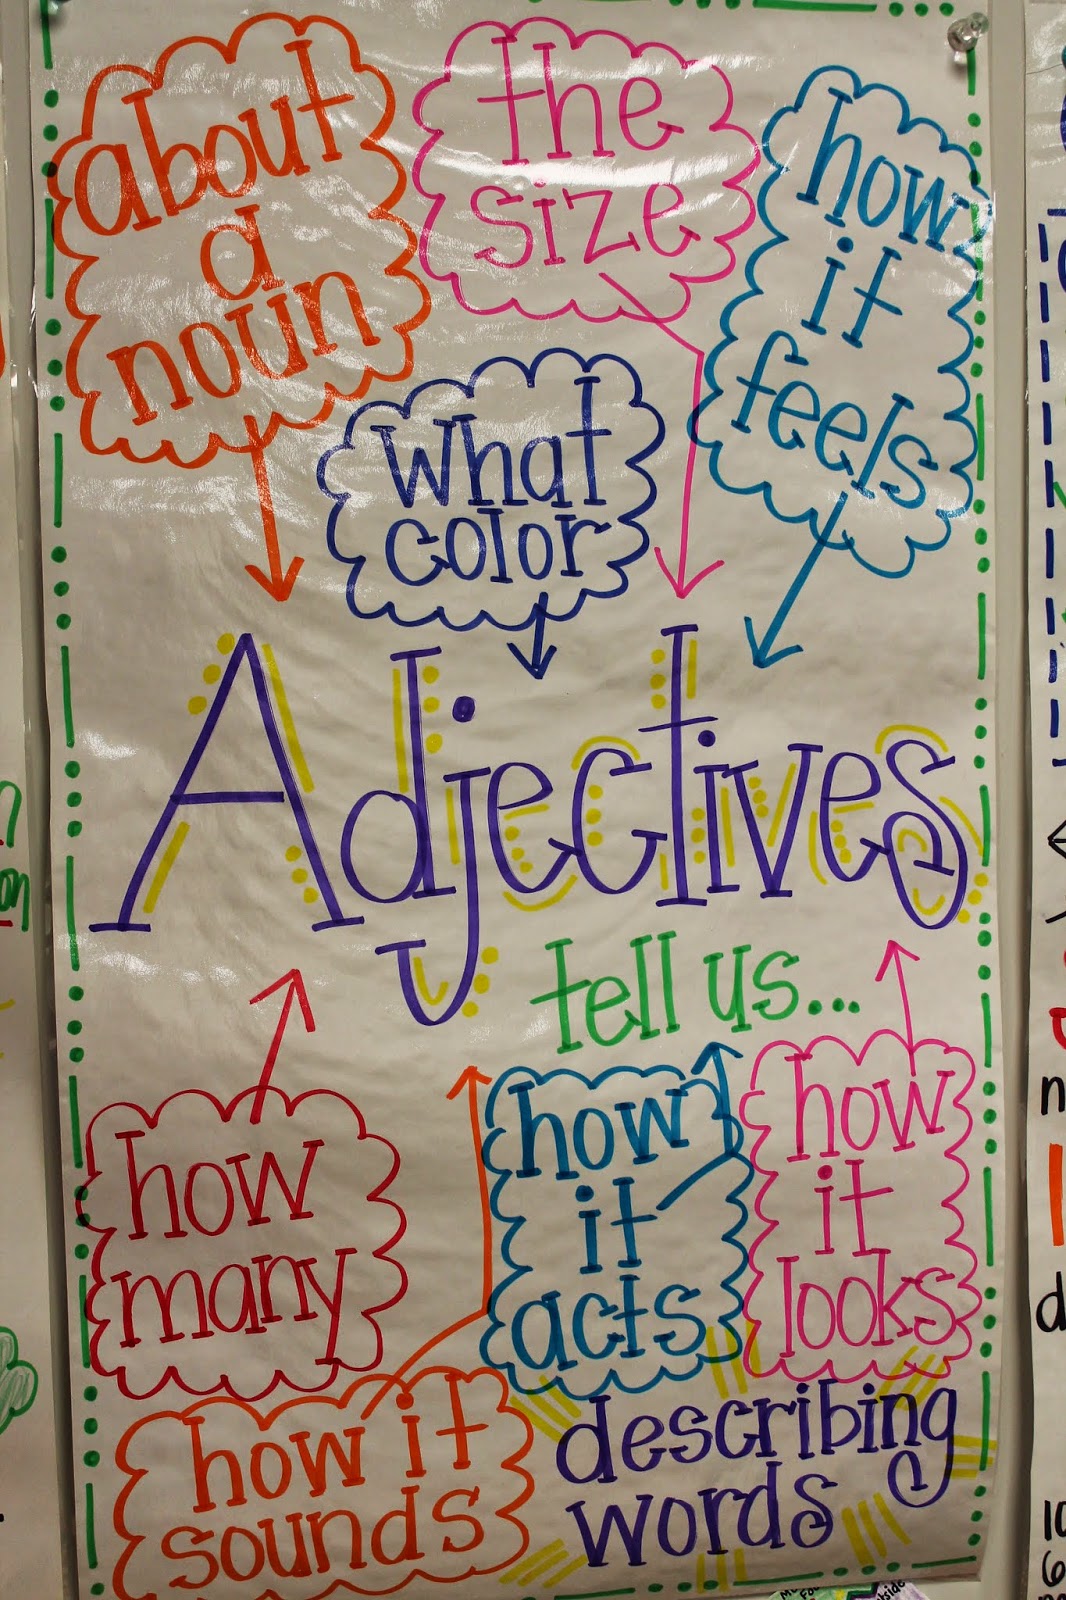 about
a
noun
the
size
how
it
feels
what
color
Adjectives
tell us...
how
many
how
it
acts
how
it
looks
how it
sounds
describing
words